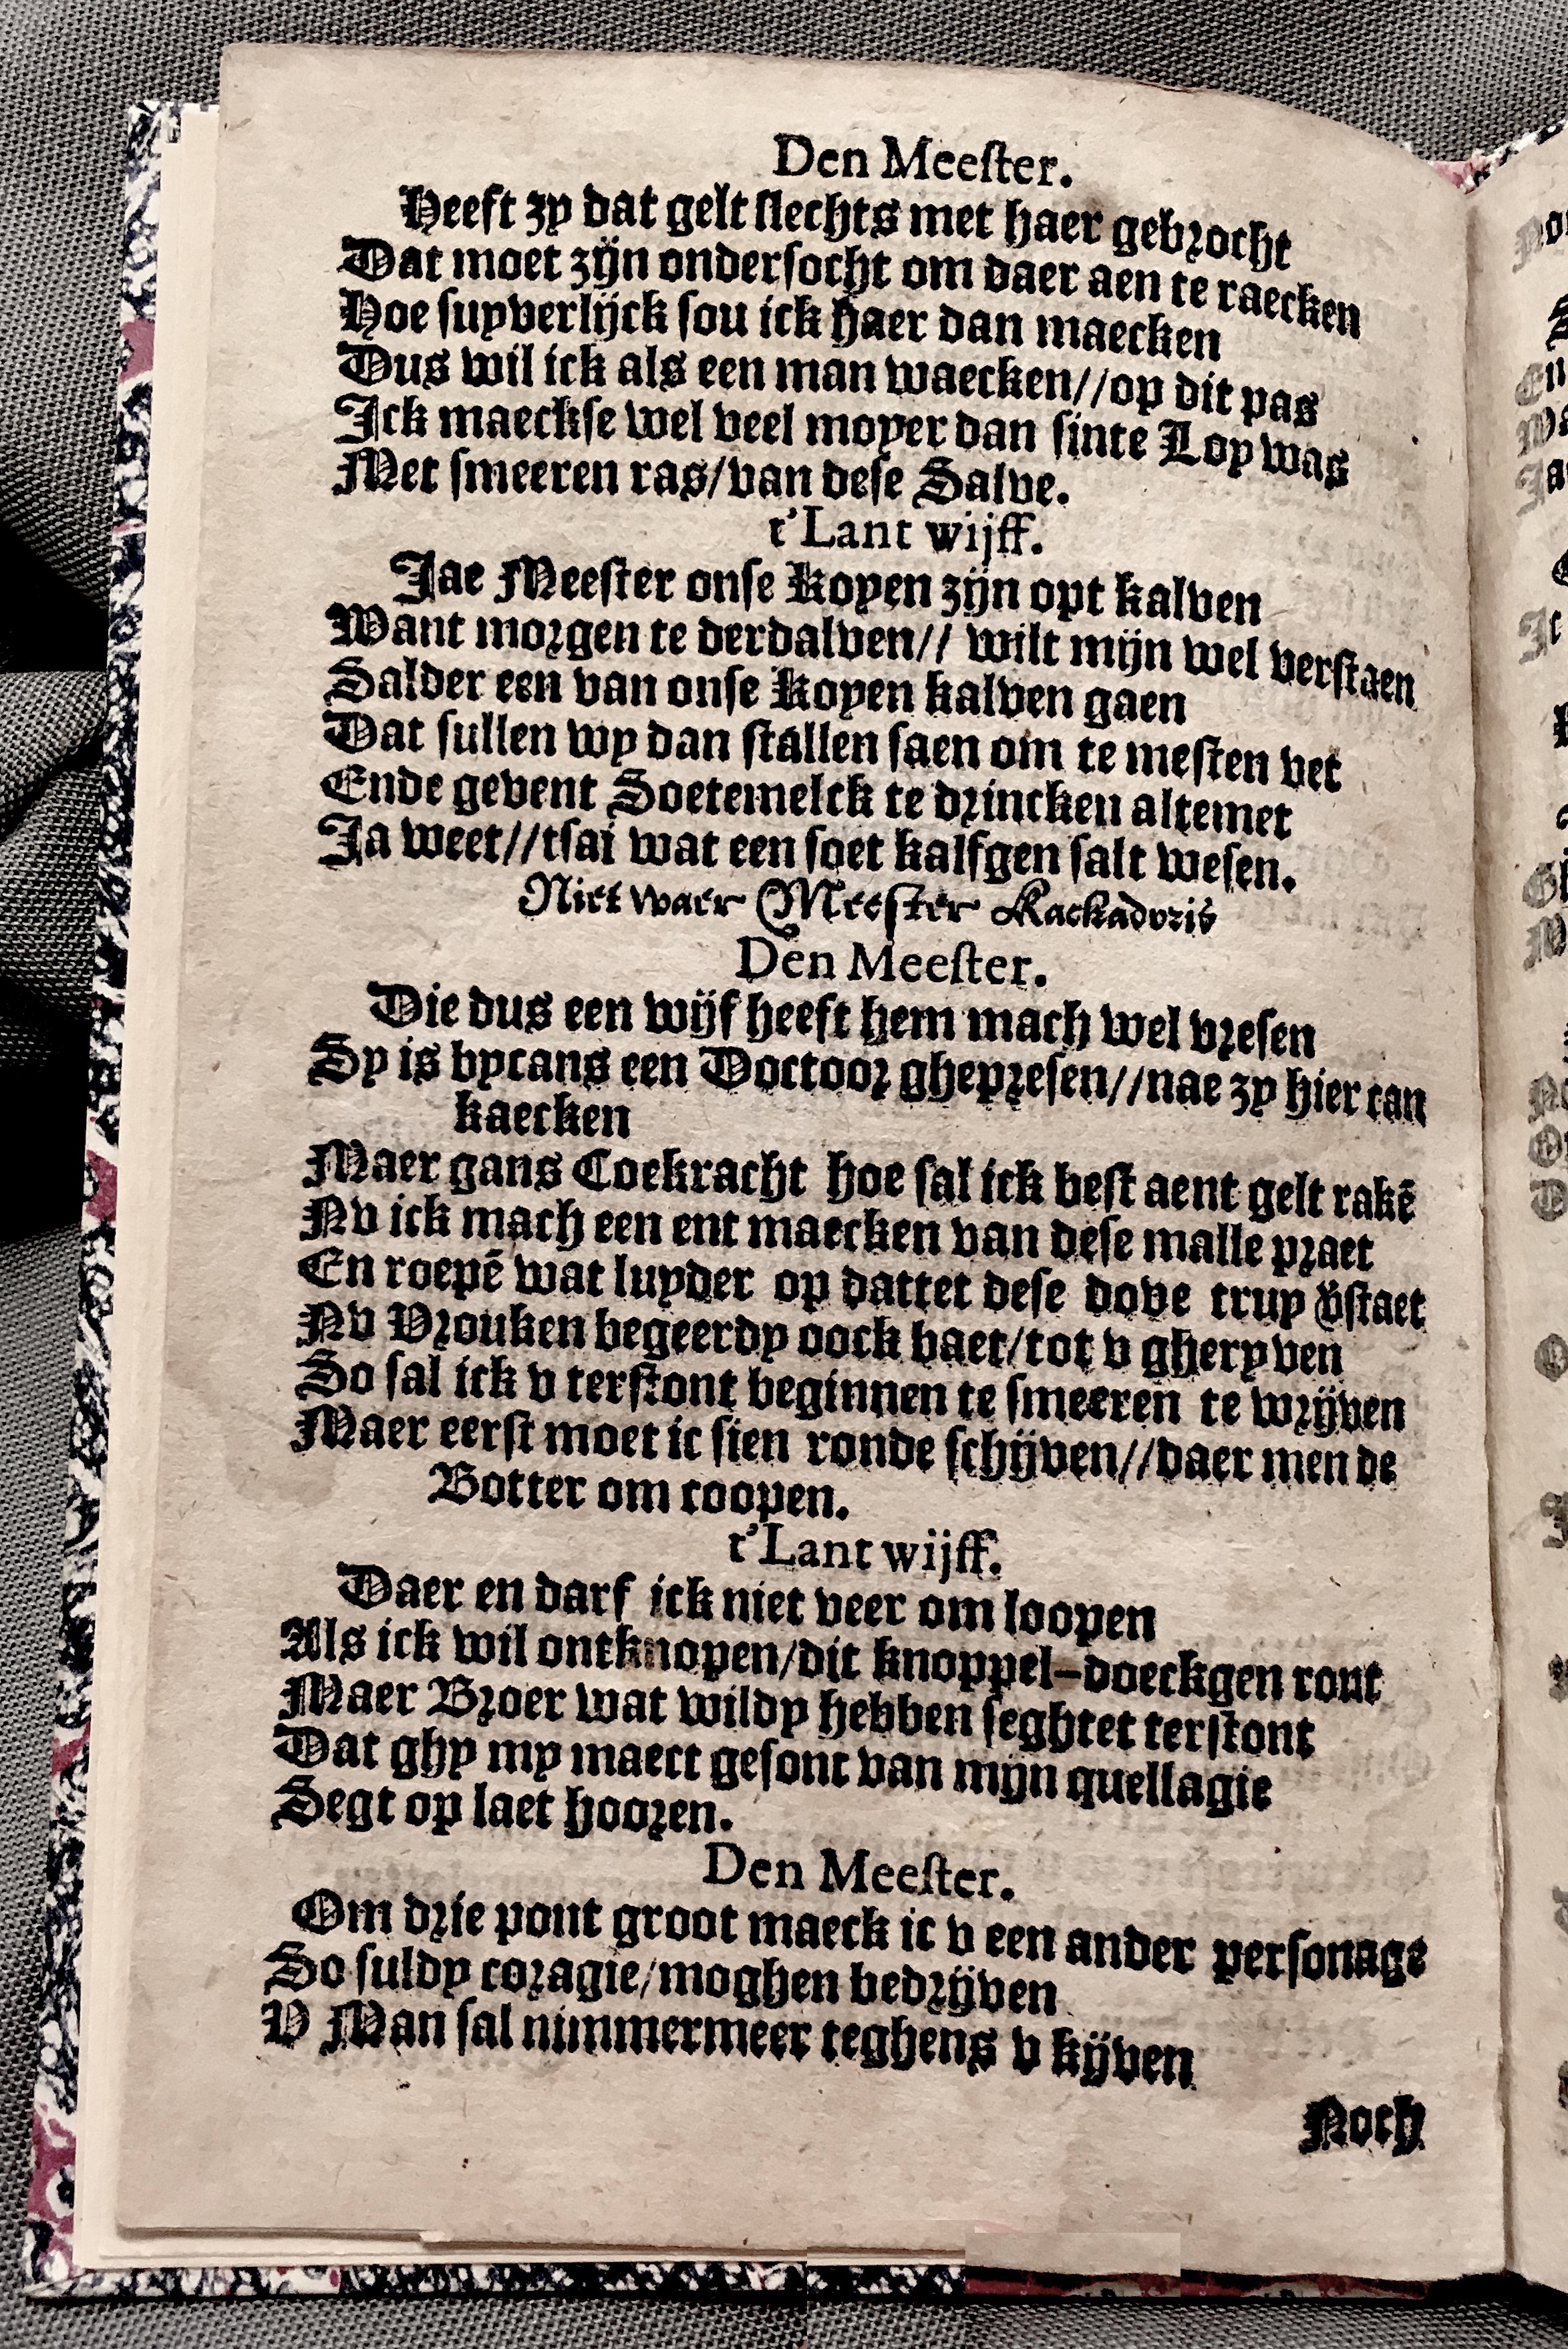 Den Meeſter.
Heeft zy dat gelt ſlechts met haer gebrocht
Dat moet zijn onderſocht om daer aen te raecken
Hoe ſuyverlijck ſou ick haer dan maecken
Dus wil ick als een man waecken//op dit pas
Ick maeckſe wel veel moyer dan ſinte Loy was
Met ſmeeren ras/van deſe Salve.
t'Lant wijff.
Jae Meeſter onſe Koyen zijn opt kalven
Want morgen te derdalven// wilt mijn wel verſtaen
Salder een van onſe Koyen kalven gaen
Dat ſullen wy dan ſtallen ſaen om te meſten vet
Ende gevent Soetemelck te drincken altemet
Ja weet//tſai wat een ſoet kalfgen ſalt weſen.
Niet waer Meeſter Kackadoris
Den Meeſter.
Die dus een wijf heeft hem mach wel vreſen
Sy is bycans een Doctoor ghepreſen//nae zy hier can
kaecken
Maer gans Coekracht hoe ſal ick beſt aent gelt rakē
Nv ick mach een ent maecken van deſe malle praet
En roepē wat luyder op dattet deſe dove truy v̄ſtaet
Nv Vrouken begeerdy oock baet/tot v gheryven
So ſal ick v terſtont beginnen te ſmeeren te wrijven
Maer eerſt moet ic ſien ronde ſchijven//daer men de
Botter om coopen.
t'Lant wijff.
Daer en darf ick niet veer om loopen
Als ick wil ontknopen/dit knoppel-doeckgen ront
Maer Broer wat wildy hebben ſeghtet terſtont
Dat ghy my maect geſont van mijn quellagie
Segt op laet hooren.
Den Meeſter.
Om drie pont groot maeck ic v een ander perſonage
So ſuldy coragie/moghen bedrijven
V Man ſal nimmermeer teghens v kijven
Noch